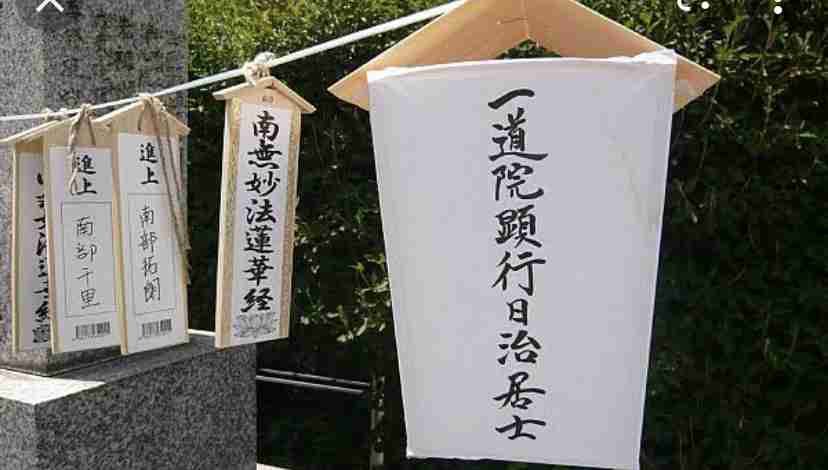 一道院顕行日治居士
南無妙法蓮華経
進上
南部拓朗
進上
南部千里
妙法蓮華経